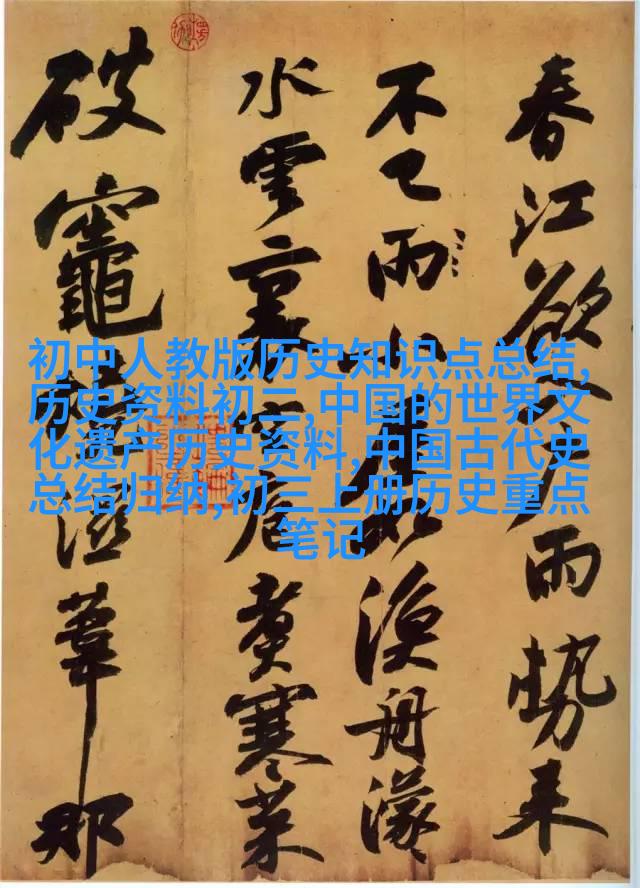 初中人教版历史知识点总结,
历史资料初二,中国的世界文
化遗产历史资料,中国古代史
总结归纳,初三上册历史重点
笔记
春江欲入戶雨勢來
不已雨小屋如漁舟濛
水雲裏空庖煮寒菜
破竈燒濕葦那